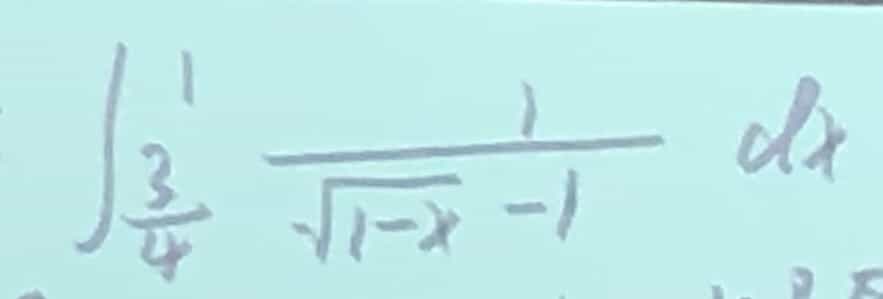 ∫_{3/4}^{1} \frac{1}{\sqrt{1-x} - 1} dx